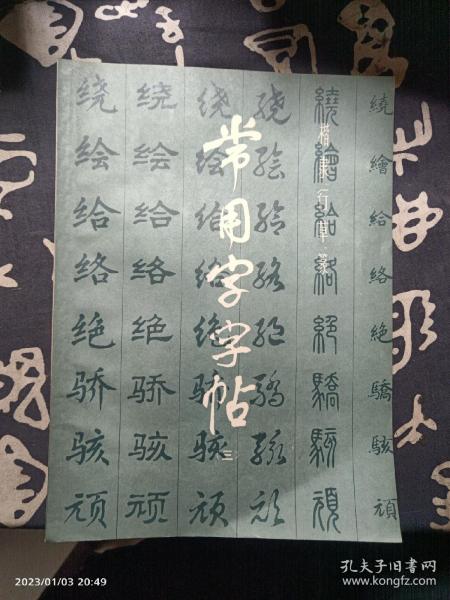 常用字字帖
三
楷·隶·行·草·篆
绕 绕 绕 绕 繞 繞
绘 绘 绘 绘 繪 繪
给 给 给 给 給 給
络 络 络 络 絡 絡
绝 绝 绝 绝 絕 絶
骄 骄 骄 骄 驕 驕
骇 骇 骇 骇 駭 駭
顽 顽 顽 顽 頑 頑
2023/01/03 20:49
孔夫子旧书网
www.kongfz.com